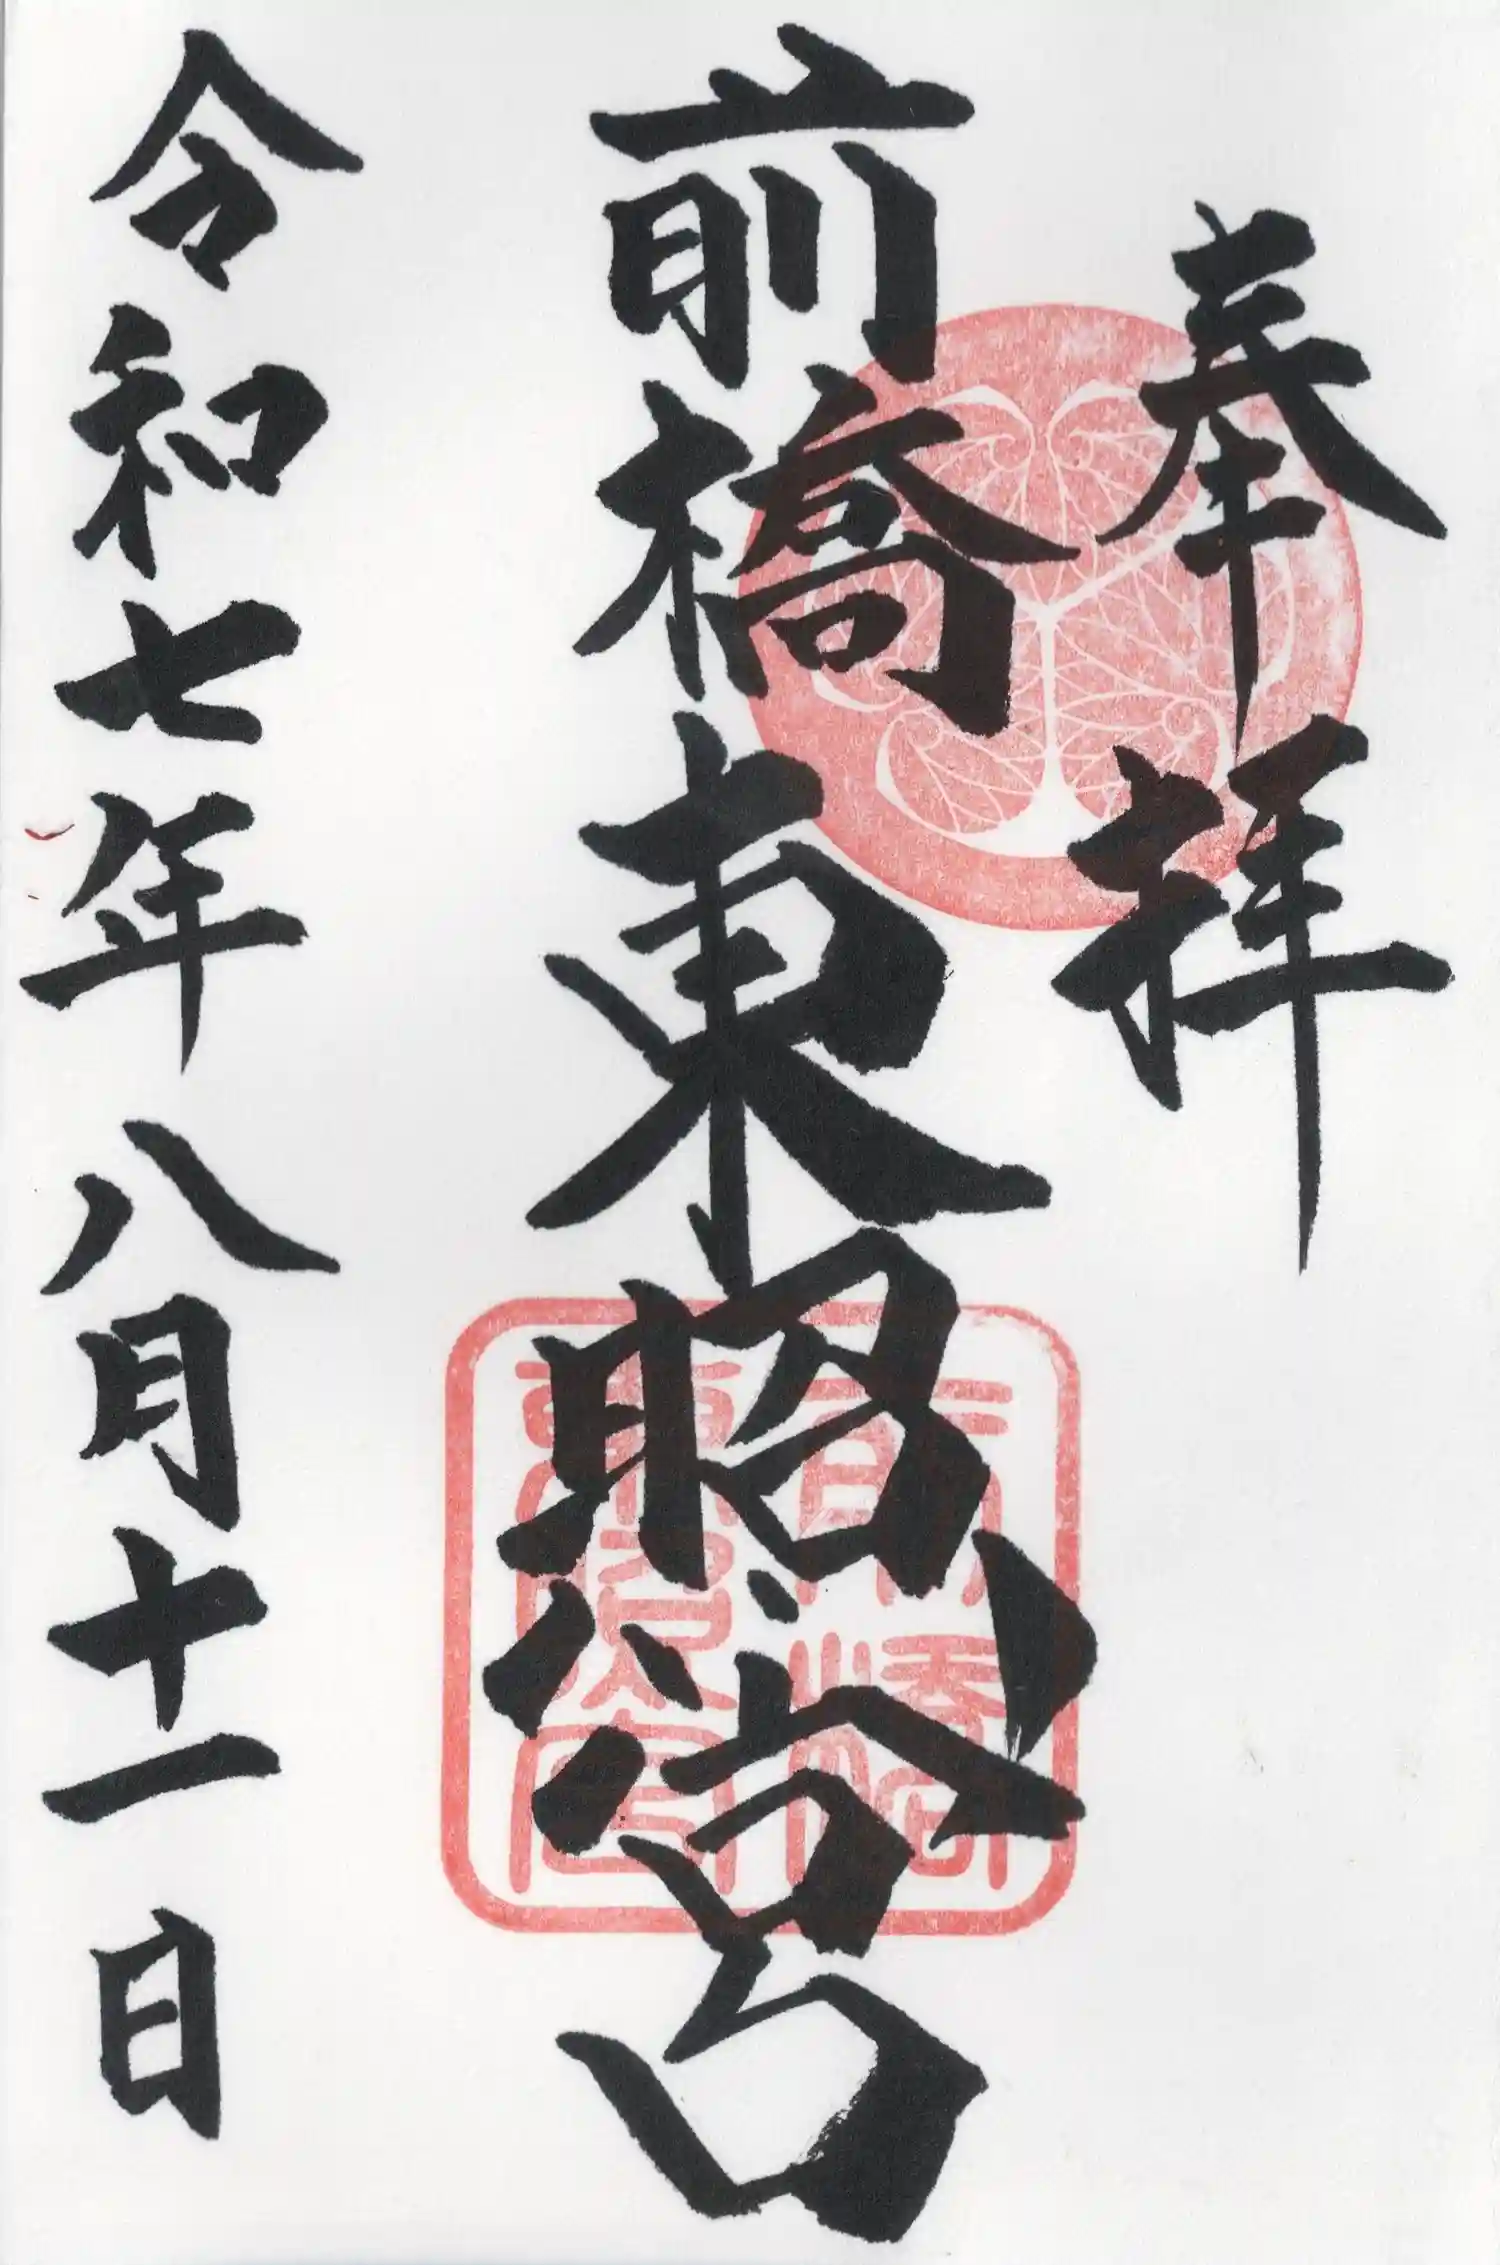 奉拝
前橋東照宮
前橋
東照宮
令和七年八月十一日